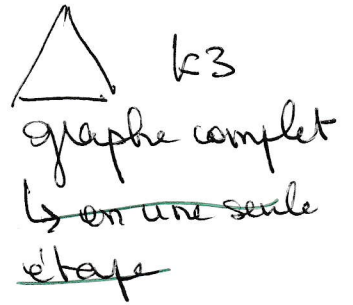 K3
graphe complet
↳ en une seule
étape